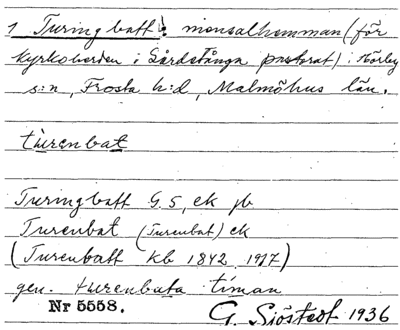 1 Turingbatt: mensalhemman (för
kyrkoherden i Gårdstånga pastorat) i Hörby
s:n, Frosta h:d, Malmöhus län.
turenbat
Turingbatt G.S, ek jb
Turenbat (Turenbat) ek
(Turenbatt kb 1842, 1917)
gen. turenbata timan
Nr 5558.
G. Sjöstedt 1936